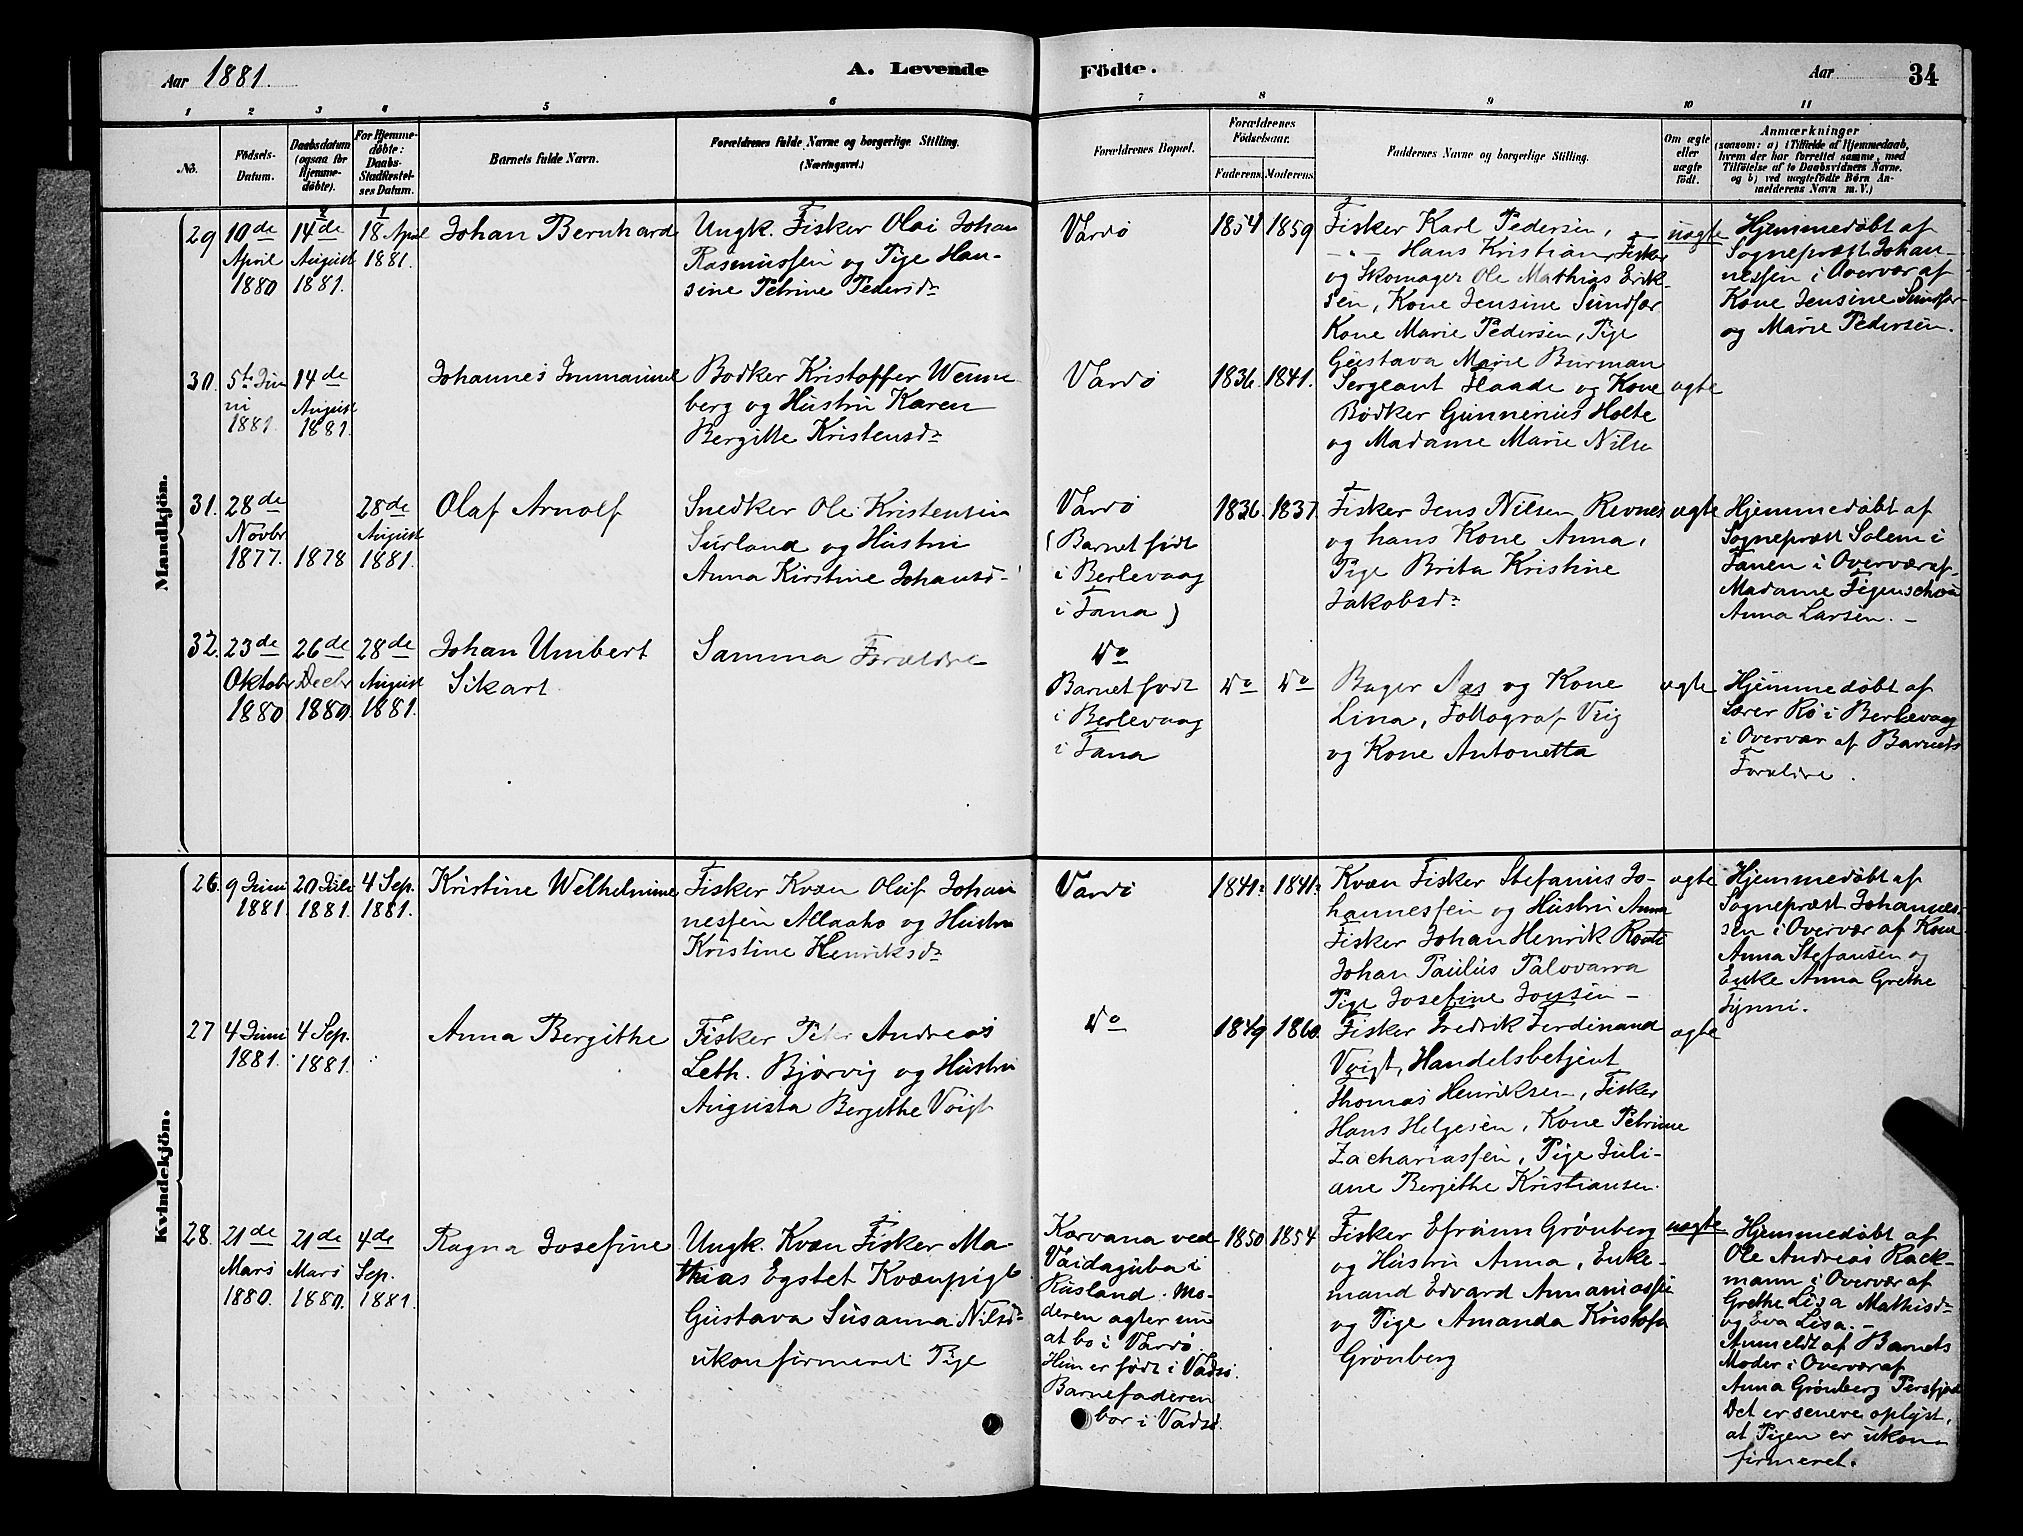 Aar 1881.
A. Levende
Födte.
Aar
34
1
2
3
4
5
6
7
8
9
10
11
No.
Födsels-
Datum.
Daabsdatum
(ogsaa for
Hjemme-
döbte).
For Hjemme-
döbte:
Daabs-
Stadfæstel-
ses Datum.
Barnets fulde Navn.
Forældrenes fulde Navne og borgerlige Stilling.
(Næringsvei.)
Forældrenes Bopæl.
Forældrenes
Födselsaar.
Faderens.
Moderens.
Faddernes Navne og borgerlige Stilling.
Om ægte
eller
uægte
født.
Anmærkninger
(saasom: a) i Tilfælde af Hjemmedaab,
hvem der har forrettet samme, med
Tilföielse af to Daabsvidners Navne,
og b) ved uægtefödte Börn An-
melderens Navn m. V.)
Mandkjön.
29
10de
April
1880
14de
August
1881.
18 April
1881.
Johan Bernhard
Ungk. Fisker Olai Johan
Rasmussen og Pige Han-
sine Petrine Pedersdr
Vardø
1854
1859
Fisker Karl Pedersen,
- " - Hans Kristian, Fisker
og Skomager Ole Mathias Erik-
sen, Kone Jensine Sundfær
Kone Marie Pedersen, Pige
Gustava Marie Burman
uægte
Hjemmedøbt af
Sogneprest Johan-
nessen i Overvær af
Kone Jensine Sundfær
og Marie Pedersen.
30.
5te Ju
ni
1881.
14de
August
1881.
Johannes Immanuel
Bødker Kristoffer Wenne
berg og Hustru Karen
Bergitte Kristensdr
Vardø
1836.
1841.
Sergeant Haade og Kone
Bødker Gunnerius Holte
og Madame Marie Nilsen
ægte
31.
28de
Novbr
1877.
1878
28de
August
1881.
Olaf Arnolf
Snedker Ole Kristensen
Surland og Hustru
Anna Kirstine Johansd-
Vardø
(Barnet født
i Berlevaag
i Tana)
1836.
1837.
Fisker Jens Nilsen Revnes
og hans Kone Anna,
Pige Brita Kristine
Jakobsdr
ægte
Hjemmedøbt af
Sogneprest Solem i
Tanen i Overvær af
Madame Figenschou
Anna Larsen. -
32.
23de
Oktober
1880
26de
Decbr
1880.
28de
August
1881.
Johan Umbert
Sikart
Samma Forældre
Do
Barnet født
i Berlevaag
i Tana
Do
Do
Bager Aas og Kone
Lina, Fottograf Vrig
og Kone Antonetta
ægte
Hjemmedøbt af
Lærer Rø i Berlevaag
i Overvær af Barnets
Forældre.
Kvindekjön.
26.
9 Juni
1881.
20 Juli
1881.
4 Sep.
1881.
Kristine Welhelmine
Fisker Kvæn Oluf Johan
nessen Allaaho og Hustru
Kristine Henriksdr
Vardø
1841.
1841.
Kvæn Fisker Stefanus Jo-
hannessen og Hustru Anna
Fisker Johan Henrik Routi
Johan Paulus Palovarra
Pige Josefine Jonsen -
ægte
Hjemmedøbt af
Sogneprest Johannes-
sen i Overvær af Kone
Anna Stefansen og
Enke Anna Grethe
Tynni.
27
4 Juni
1881.
4 Sep.
1881.
Anna Bergithe
Fisker Peter Andreas
Leth. Bjørvig og Hustru
Augusta Bergithe Voigt
Do
1849
1860.
Fisker Fredrik Ferdinand
Voigt, Handelsbetjent
Thomas Henriksen, Fisker
Hans Helgesen, Kone Petrine
Zachariassen, Pige Juli-
ane Bergithe Kristiansen.
ægte
28.
21de
Mars
1880.
21de
Mars
1880.
4de
Sep.
1881.
Ragna Josefine
Ungk. Kvæn Fisker Ma-
thias Egstet Kvænpige
Gustava Susanna Nilsdr
ukonfirmeret Pige
Korvana ved
Vaidaguba i
Rusland. Mo-
deren agter nu
at bo i Vardø.
Hun er født i Vadsø.
Barnefaderen
bor i Vadsø.
1850
1854
Fisker Efraim Grønberg
og Hustru Anna, Enke-
mand Edvard Annaniassen
og Pige Amanda Kristofa
Grønberg
uægte
Hjemmedøbt af
Ole Andreas Rack-
mann i Overvær af
Grethe Lisa Mathisdr
og Eva Lisa. -
Anmeldt af Barnets
Moder i Overvær af
Anna Grønberg Persfjord
Det er senere oplyst,
at Pigen er ukon-
firmeret.